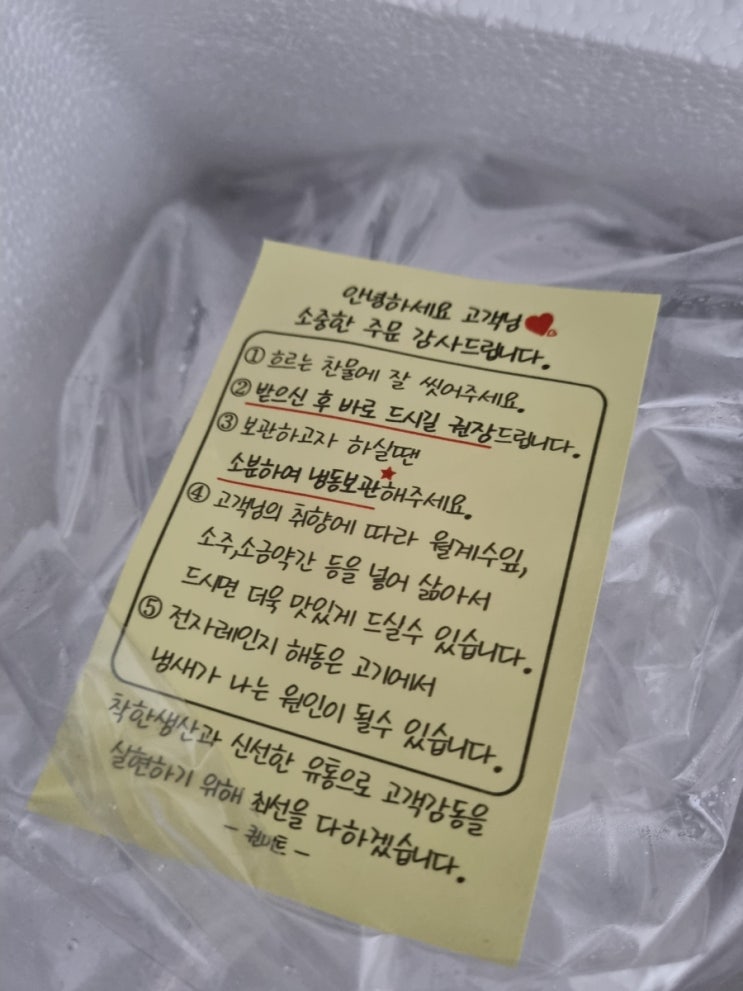 안녕하세요 고객님
소중한 주문 감사드립니다.
① 흐르는 찬물에 잘 씻어주세요.
② 받으신 후 바로 드시길 권장드립니다.
③ 보관하고자 하실땐
소분하여 냉동보관해주세요.
④ 고객님의 취향에 따라 월계수잎,
소주,소금약간 등을 넣어 삶아서
드시면 더욱 맛있게 드실수 있습니다.
⑤ 전자레인지 해동은 고기에서
냄새가 나는 원인이 될수 있습니다.
착한생산과 신선한 유통으로 고객감동을
실현하기 위해 최선을 다하겠습니다.